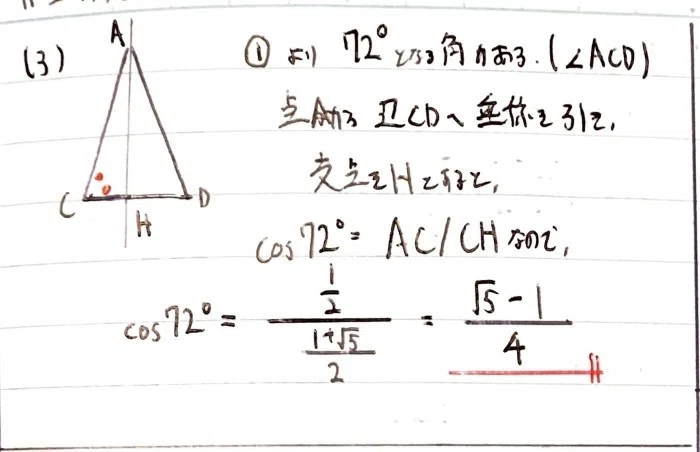 (3)
A
C
D
H
① より 72°となる角がある.(∠ACD)
点Aから 辺CDへ 垂体を引いて,
交点をHとすると,
cos72°= AC/CH なので,
cos72° = \frac{\frac{1}{2}}{\frac{1+√5}{2}} = \frac{√5-1}{4}